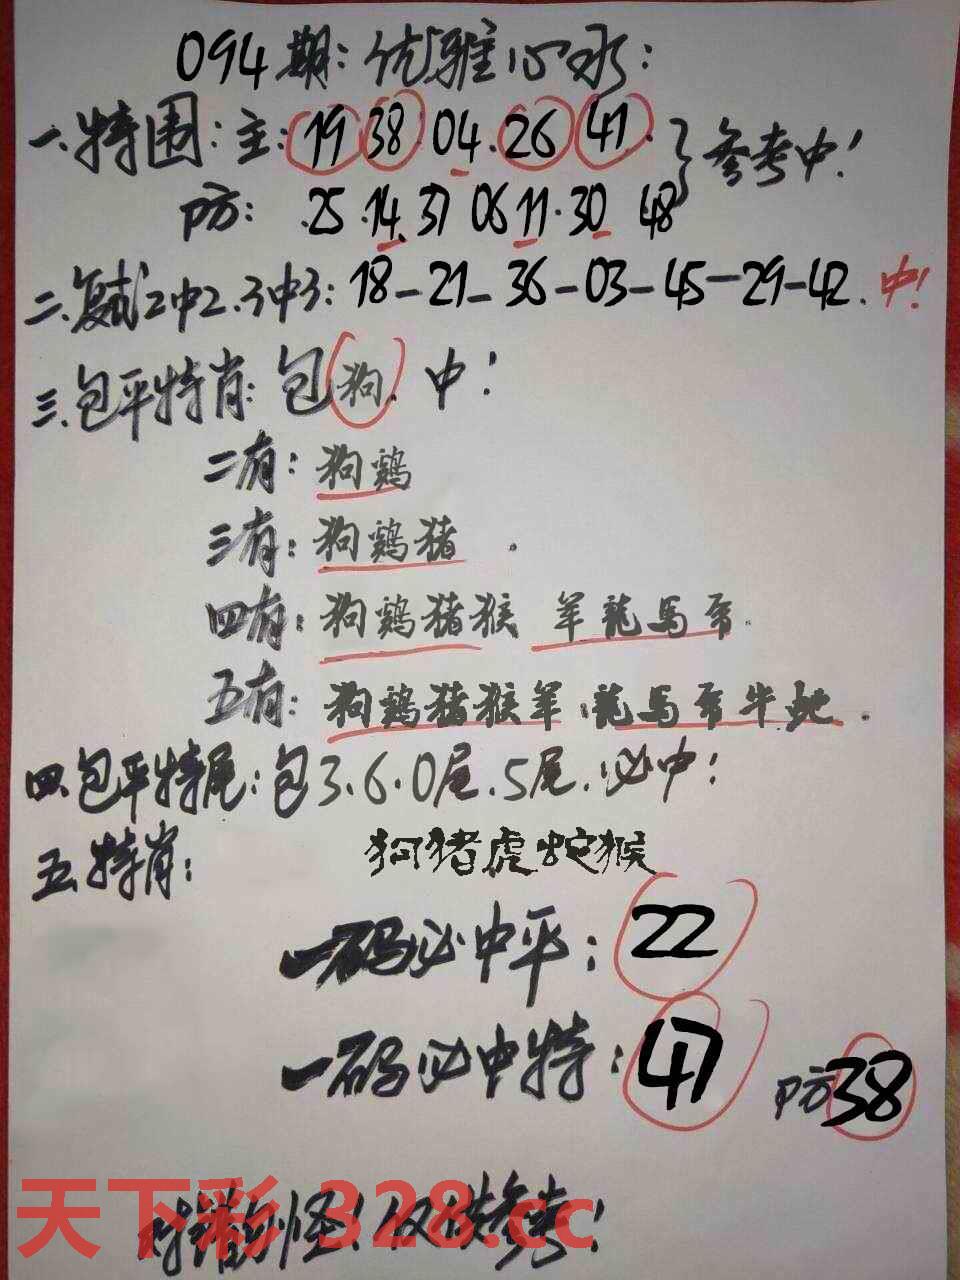 094期:优雅心水:
一.特围:主:19 38 04.26 41. 参考中!
防: .25.14.37 06 11.30 48
二.复式2中2.3中3:18-21-36-03-45-29-42.中!
三.包平特肖:包狗.中!
二有:狗鸡
三有:狗鸡猪.
四有:狗鸡猪猴 羊龍马
五有:狗鸡猪猴羊.龍马 牛蛇.
四.包平特尾:包3.6.0尾.5尾.必中!
五.特肖: 狗猪虎蛇猴
一码必中平:22
一码必中特:47 防38
错勿怪!仅供参考!
天下彩 328.cc